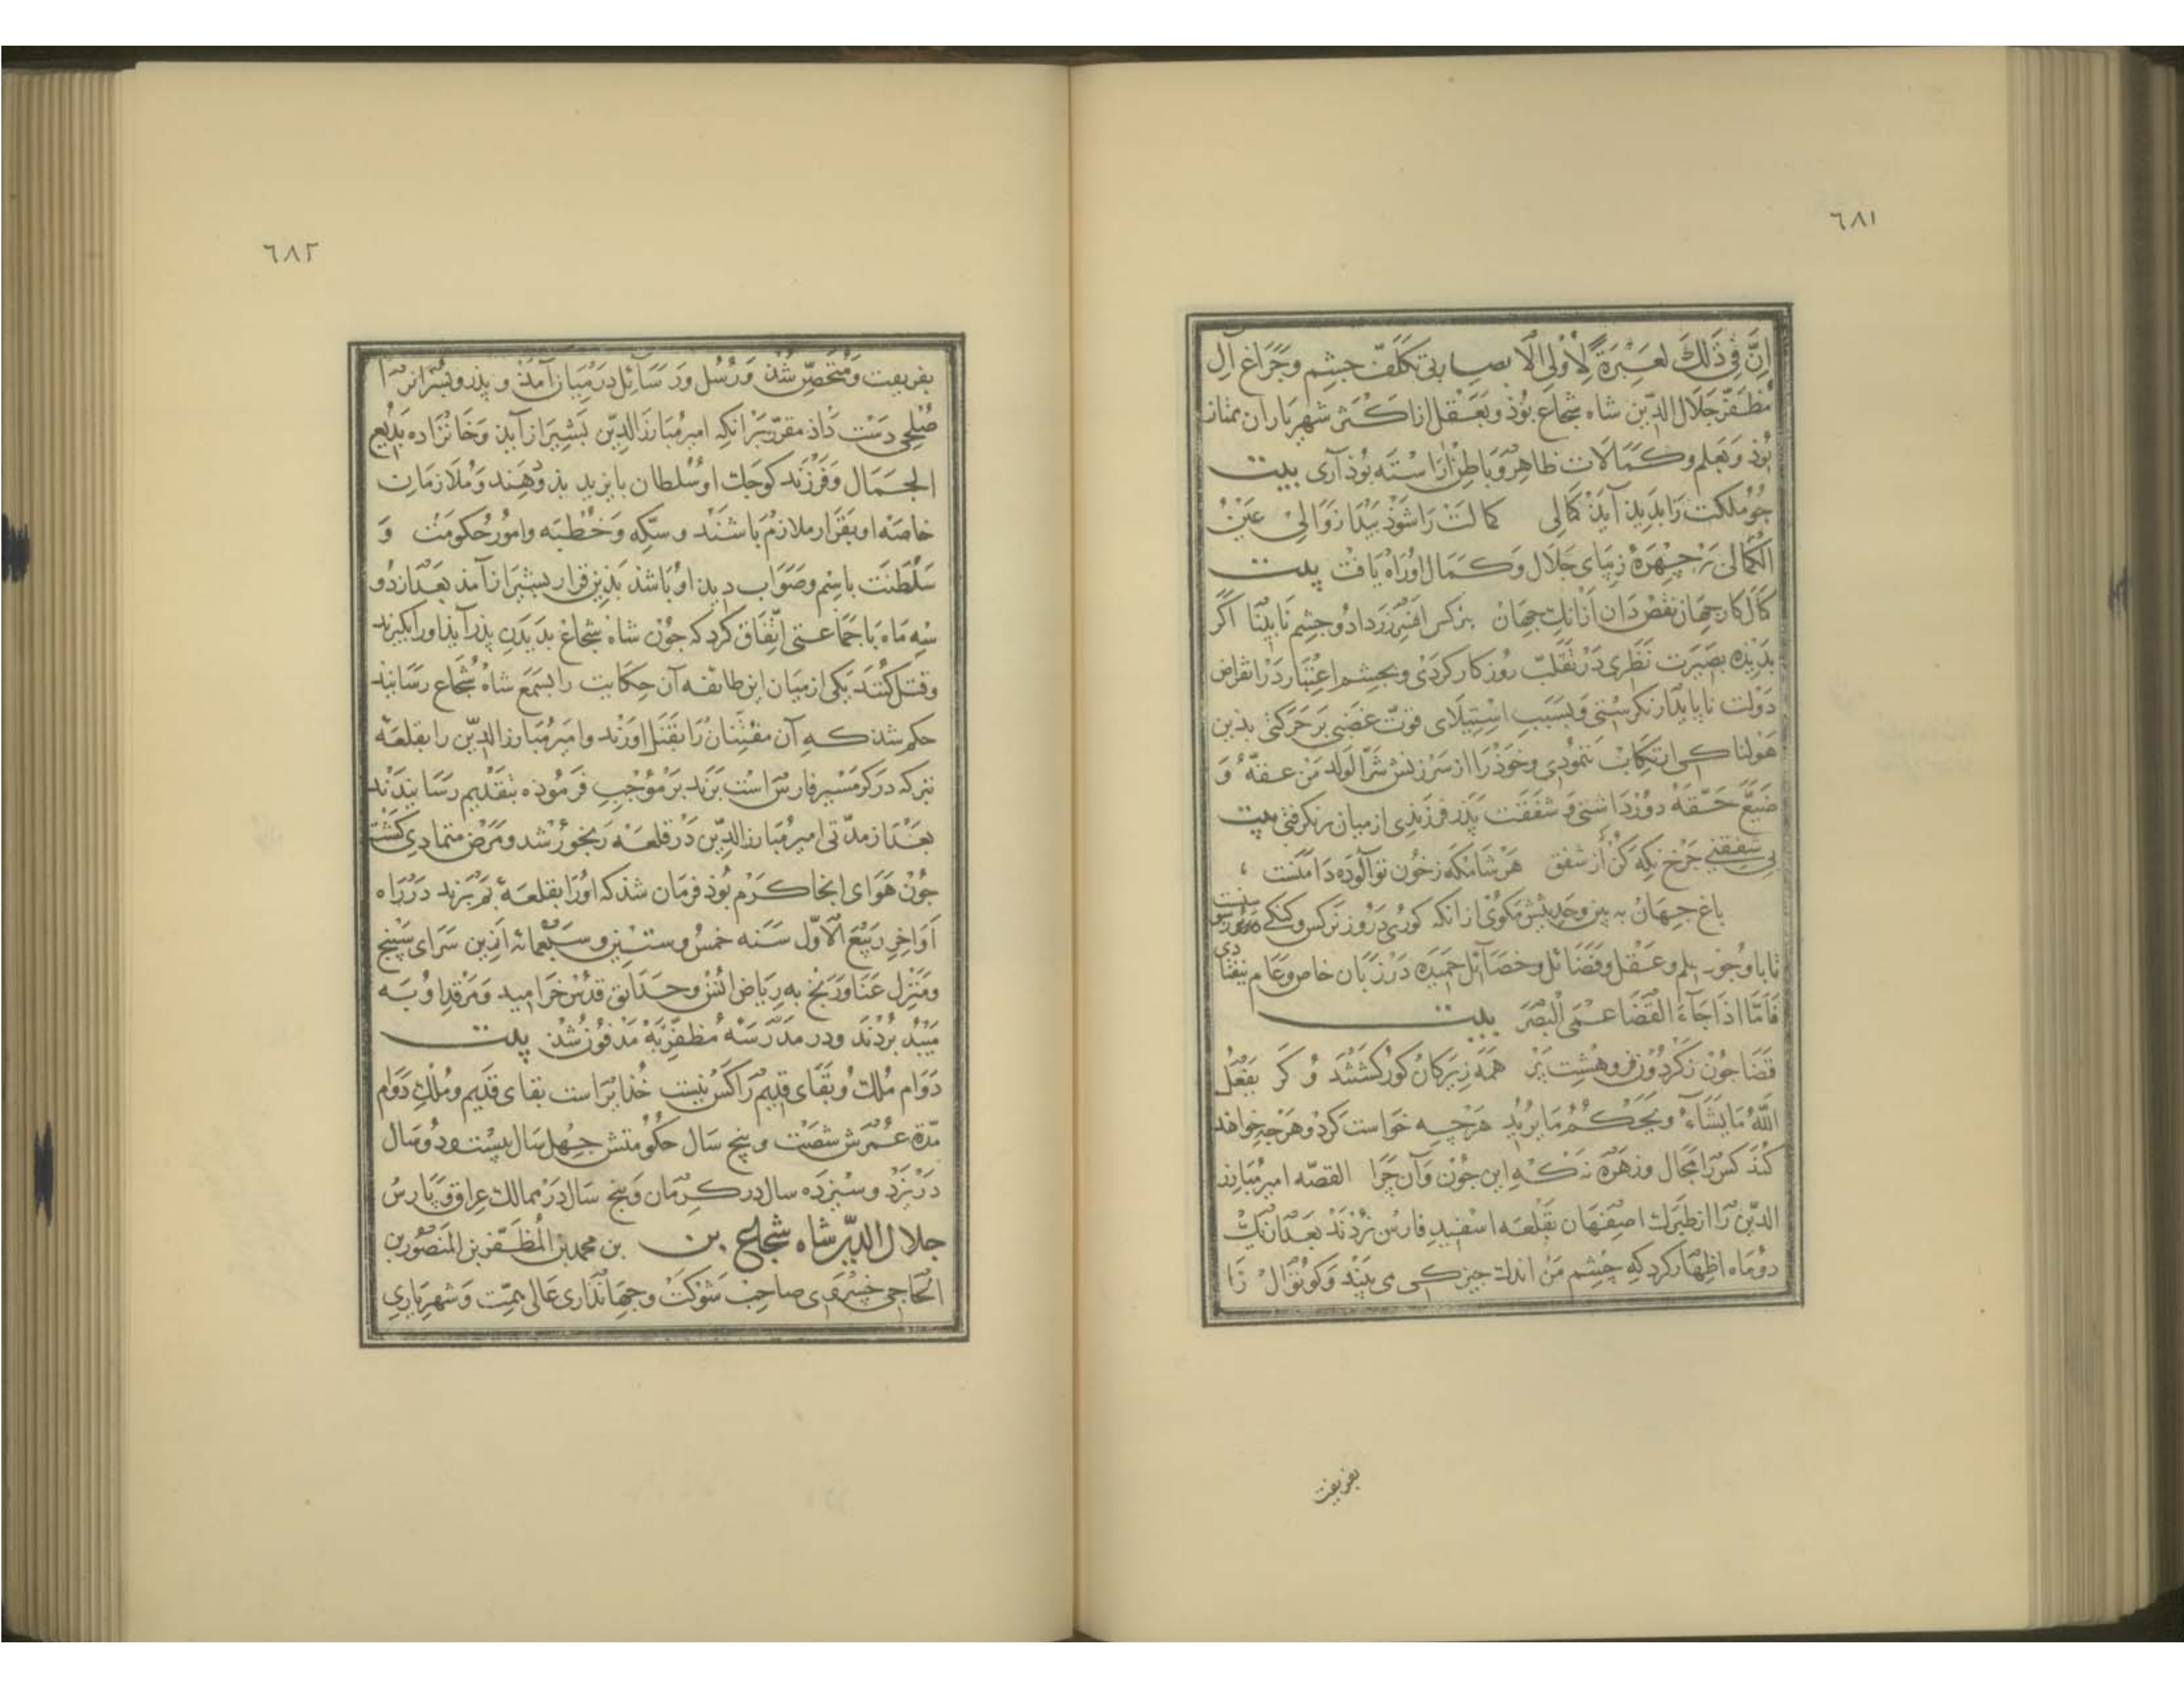 ٦٨١
اِنَّ فِی ذَلِكَ لَعِبْرَةً لِاُولِی الْاَبصار بی تکلّف چشم و چراغ آل
مظفّر جلال الدّین شاه شجاع بُوذ و بعقل از اکثر شهریاران ممتاز
بُوذ و بعلم و کمالات ظاهر و باطن آراسته بُوذ آری بیت
جو مُلکت را بدید آید کمالی کمالت را شوذ بیدا زوالی عین
الکمالی بر چهرۀ زیبای جلال و کمال او راه یافت بیت
کمال کار جهان نقص دان از آنك جهان بنرکس افسر زر داد و جشم نابینا اکر
بدیده بصیرت نظری در تقلّب روزکار کردی و بجشم اعتبار در انقراض
دولت نابایدار نکرستی و بسبب استیلای قوّت غضبی بر حرکتی بذین
هولناکی ارتکاب ننمودی و خوذ را از سرزنش شرّ الولد من عقّهُ و
ضیّع حقّهُ دور داشتی و شفقت پدر فرزندی از میان برنکرفتی بیت
بی شفقتی جرخ نکه کن از شفق هر شامکه ز خون تو آلوده دامنست ،
باغ جهان به بین و حدیثش مکوی از انکه کوری در وز نرکس و کنکی
تا با وجوذ علم و عقل و فضائل و خصائل حمیده در زبان خاص و عام نیفتا دی
فَاَمَّا اِذَا جَآءَ القَضَا عَمِیَ الْبَصَرَ بیت
قضا جون ز کردون فرو هشت پر همه زیرکان کور کشتند و کر یفعل
اللّٰهُ مَا یَشَآءُ و یَحکُمُ مَا یُرِیُد هرچه خواست کرد و هرجه خواهد
کند کس را مجال و زهره نه که این جون و آن چرا القصّه امیر مبارز
الدّین را از طبرك اصفهان بقلعه اسفید فارس بردند بعد از یك
دو ماه اظهار کرد که چشم من اندك جیزکی می بیند و کوتوال را
بفریفت
٦٨٢
بفریفت و متحصّن شذ و رُسُل و رسائل در میان آمد و پدر و پسران را
صلحی دست داذ مقرّر بر انکه امیر مبارز الدّین بشیراز آید و خانزاده بدیع
الجمال و فرزند کوجك او سلطان بایزید بذو دهند و ملازمان
خاصه او بقرار ملازم باشند و سکّه و خطبه و امور حکومت و
سلطنت باسم و صواب دید او باشد بذین قرار بشیراز آمد بعد از دو
سه ماه با جماعتی اتّفاق کرد که جون شاه شجاع بدیدن پدر آید او را بکیرند
و قتل کنند یکی از میان این طائفه آن حکایت را بسمع شاه شجاع رسانید
حکم شد که آن مفتّنان را بقتل اورند و امیر مبارز الدّین را بقلعۀ
تبر که در کرمسیر فارس است برند بر موجب فرموده بتقدیم رسانیدند
بعد از مدّتی امیر مبارز الدّین در قلعه رنجور شد و مرض متمادی کشت
جون هوای انجا کرم بوذ فرمان شد که او را بقلعۀ بم برند در راه
اواخر ربیع الاوّل سنه خمس و ستین و سبعمائه ازین سرای سپنج
و منزل عنا و رنج به ریاض انس و حدائق قدس خرامید و مرقد او به
میبد بردند و در مدرسه مظفّریّه مدفون شذ بیت
دوام ملك و بقای قدیم را کس نیست خذایراست بقای قدیم و ملك دوام
مدّة عمرش شصت و پنج سال حکومتش جهل سال بیست و دو سال
در یزد و سیزده سال در کرمان و پنج سال در ممالك عراق و پارس
جلال الدّین شاه شجاع بن بن محمد بن المظفّر بن المنصور بن
الحاجی خسروی صاحب شوکت و جهانداری عالی همّت و شهریاری